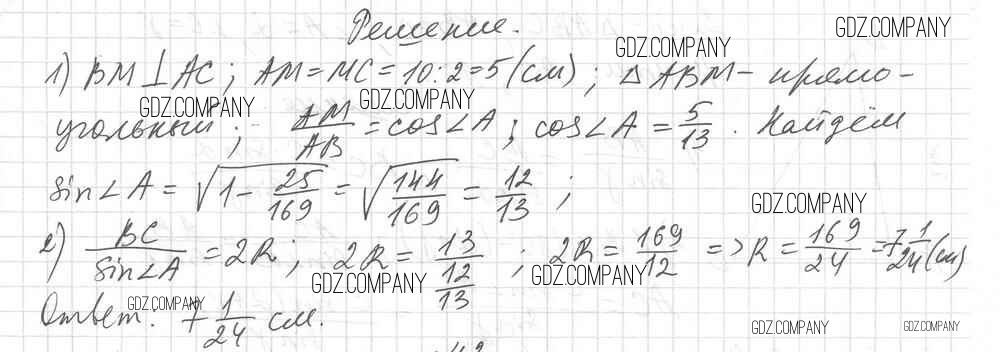 Решение.
GDZ.COMPANY
GDZ.COMPANY
1) BM⊥AC; AM=MC=10:2=5(см); △ABM- прямо-
GDZ.COMPANY
GDZ.COMPANY
угольный; AM/AB = cos∠A; cos∠A = 5/13. Найдём
sin∠A = √(1 - 25/169) = √(144/169) = 12/13;
GDZ.COMPANY
2) BC/sin∠A = 2R; 2R = 13/(12/13); 2R = 169/12 => R = 169/24 = 7 1/24 (см)
GDZ.COMPANY
GDZ.COMPANY
GDZ.COMPANY
Ответ: 7 1/24 см.
GDZ.COMPANY
GDZ.COMPANY